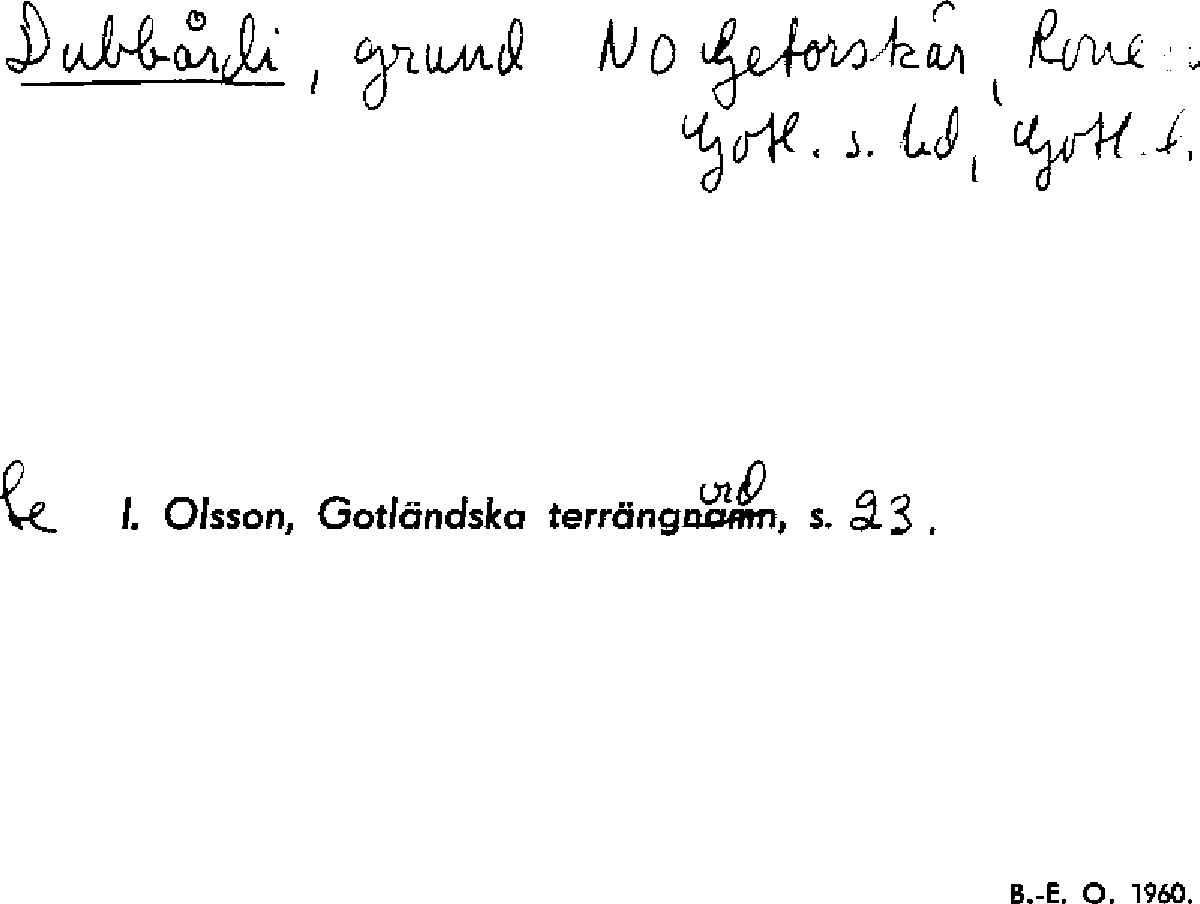 Dubbårdi, grund NO Getorskär, Rone
Gotl. s. hd, Gotl. l.
Se I. Olsson, Gotländska terrängord, s. 23.
B.-E. O. 1960.